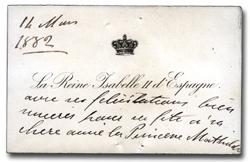 14 Mars
1882
La Reine Isabelle II d'Espagne.
avec ses félicitations bien
sincères pour sa fête à sa
chère amie la Princesse Mathilde